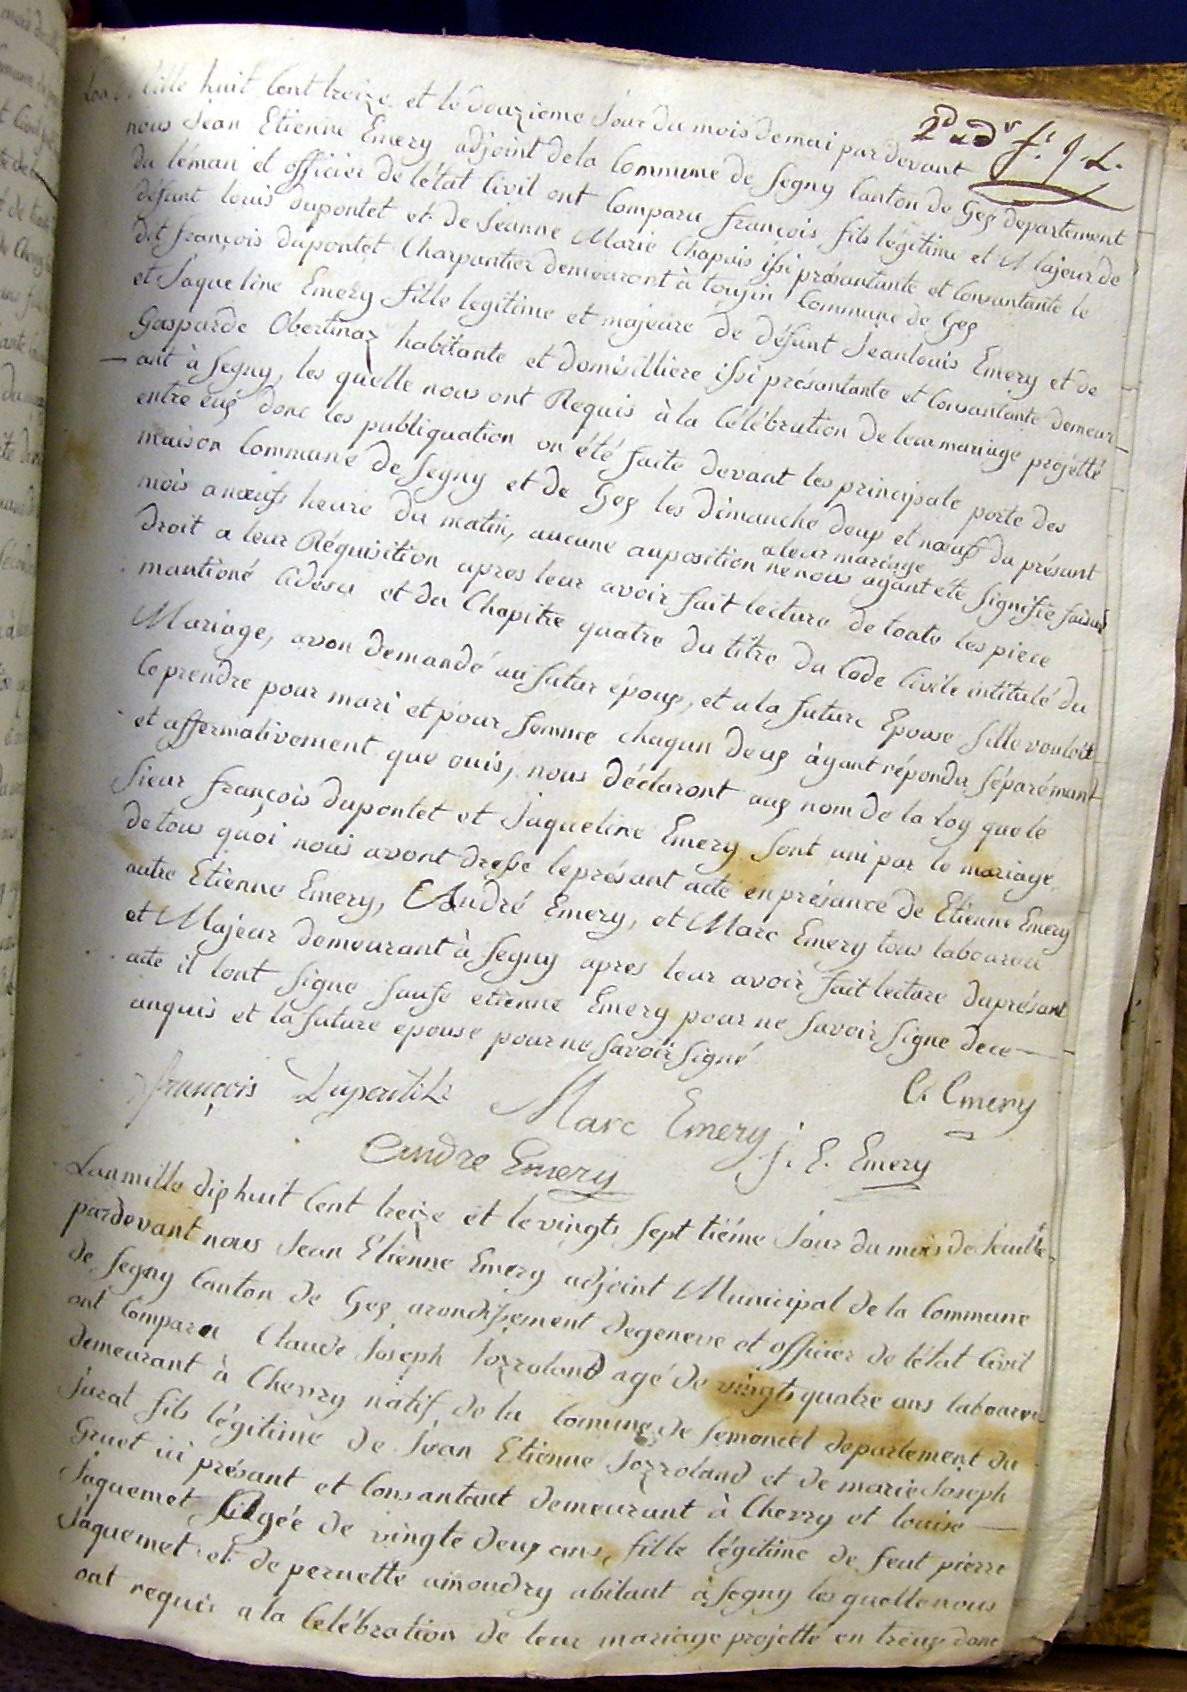 Lan Mille huit Cent treize et le douzieme Jour du mois de mai par devant
2d
nous Jean Etienne Emery adjoint de la Commune de Segny Canton de Gex departement
du léman et officier de létat Civil ont Comparu françois fils légitime et Majeur de
défunt louis dupontet et de Jeanne Marie Chapuis issi présantante et Consantante le
dit françois dupontet Charpantier demeuront à tougin Commune de Gex
et Jaqueline Emery fille legitime et majeure de défunt Jeanlouis Emery et de
Gasparde Obertinaz habitante et domisilliere issi présantante et Consantante demeur
ant à Segny, les quelle nous ont Requis à la Célébration de leur mariage projetté
entre eux donc les publiquation on été faite devant les principale porte des
maison Commune de Segny et de Gex les dimanche deux et nœuf du présant
mois a nœufs heure du matin, aucune auposition a leur mariage ne nous ayant été Signifié, faisant
droit a leur Réquisition apres leur avoir fait lecture de toute les piece
mantioné Cidesu et du Chapitre quatre du titre du Code Civile intitulé du
Mariage, avon demandé au futur époux, et a la future Epouse Sille vouloit
Ce prendre pour mari et pour femme chaqun deux àyant répondu Séparémant
et affermativement que ouis, nous déclaront aux nom de la Loy que le
Sieur françois dupontet et Jaqueline Emery Sont uni par le mariage,
de tous quoi nous avont dressé le présant acte en présance de Etienne Emery
autre Etienne Emery, André Emery, et Marc Emery tous laboureu
et Majeur demeurant à Segny apres leur avoir fait lecture du présant
acte il lont Signe Saufe etienne Emery pour ne Savoir Signe de ce
anquis et la future epouse pour ne Savoir Signé
françois Dupontet Marc Emery E. Emery
André Emery J. E. Emery
Lan mille dix huit Cent treize et le vingts Sept tiéme Jour du mois de Jeuillet
pardevant nous Jean Etienne Emery adjoint Municipal de la Commune
de Segny Canton de Gex arondissement de geneve et officier de létat Civil
ont Comparu Claude Joseph Jozroland agé de vingts quatre ans laboureu
demeurant à Chevry natif de la Comune de Semoncel departement du
Jurat fils légitime de Jean Etienne Jozroland et de marie Joseph
Gruet ici présant et Consantant demeurant à Chevry et louise
Jaquemet agée de vingte deux ans, fille légitime de feut pierre
Jaquemet et de pernette amoudry abitant à Segny les quelle nous
ont requis a la Celébration de leur mariage projetté en treux donc